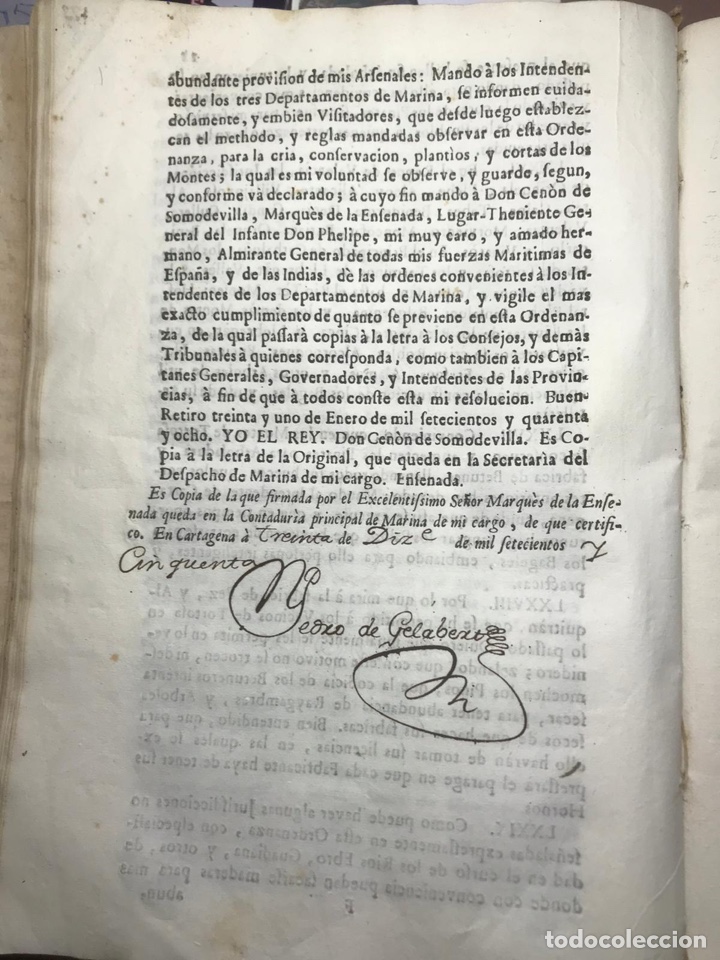 abundante provision de mis Arsenales: Mando à los Intenden-
tes de los tres Departamentos de Marina, se informen cuida-
dosamente, y embien Visitadores, que desde luego establez-
can el methodo, y reglas mandadas observar en esta Orde-
nanza, para la cria, conservacion, plantìos, y cortas de los
Montes; la qual es mi voluntad se observe, y guarde, segun,
y conforme và declarado; à cuyo fin mando à Don Cenòn de
Somodevilla, Marquès de la Ensenada, Lugar-Theniente Ge-
neral del Infante Don Phelipe, mi muy caro, y amado her-
mano, Almirante General de todas mis fuerzas Maritimas de
España, y de las Indias, dè las ordenes convenientes à los In-
tendentes de los Departamentos de Marina, y vigile el mas
exacto cumplimiento de quanto se previene en esta Ordenan-
za, de la qual passarà copias à la letra à los Consejos, y demàs
Tribunales à quienes corresponda, como tambien à los Capi-
tanes Generales, Governadores, y Intendentes de las Provin-
cias, à fin de que à todos conste esta mi resolucion. Buen-
Retiro treinta y uno de Enero de mil setecientos y quarenta
y ocho. YO EL REY. Don Cenòn de Somodevilla. Es Co-
pia à la letra de la Original, que queda en la Secretarìa del
Despacho de Marina de mi cargo. Ensenada.
Es Copia de la que firmada por el Excelentissimo Señor Marquès de la Ense-
nada queda en la Contadurìa principal de Marina de mi cargo, de que certifi-
co. En Cartagena à treinta de Diz.e de mil setecientos y
Cinquenta
Pedro de Gelabert
todocoleccion
todocoleccion.net